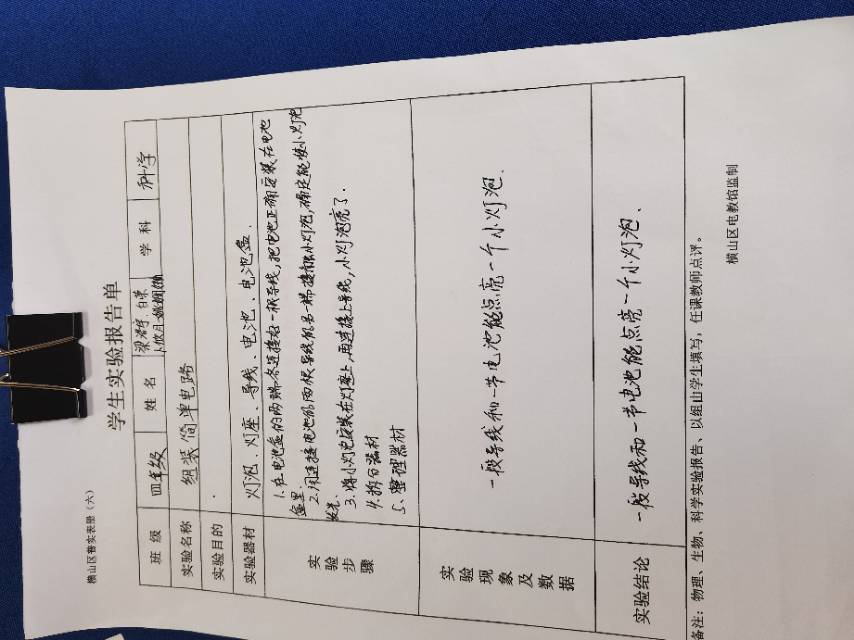 横山区普实表册（六）
学生实验报告单
班 级 四年级 姓 名 学 科 科学
实验名称 组装简单电路
实验目的
实验器材 灯泡、灯座、导线、电池、电池盒.
实验步骤
1.在电池盒的两端各连接好一根导线,把电池正确安装在电池
盒里.
2.用连接电池的两根导线的另一端接触小灯泡,确定能使小灯泡
发光.
3.将小灯泡安装在灯座上,再连接上导线,小灯泡亮了.
4.拆分器材
5.整理器材
实验现象及数据
一段导线和一节电池能点亮一个小灯泡.
实验结论 一段导线和一节电池能点亮一个小灯泡.
备注：物理、生物、科学实验报告、以组由学生填写，任课教师点评。
横山区电教馆监制